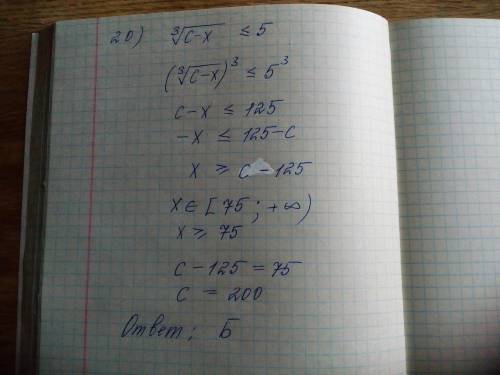 20) ∛(c-x) ≤ 5
(∛(c-x))³ ≤ 5³
c-x ≤ 125
-x ≤ 125-c
x ≥ c-125
x ∈ [75; +∞)
x ≥ 75
c-125 = 75
c = 200
Ответ; Б